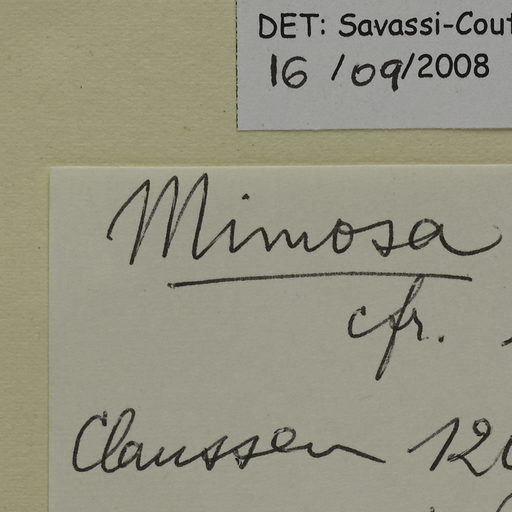 DET: Savassi-Cout
16/09/2008
Mimosa
cfr.
Claussen 120